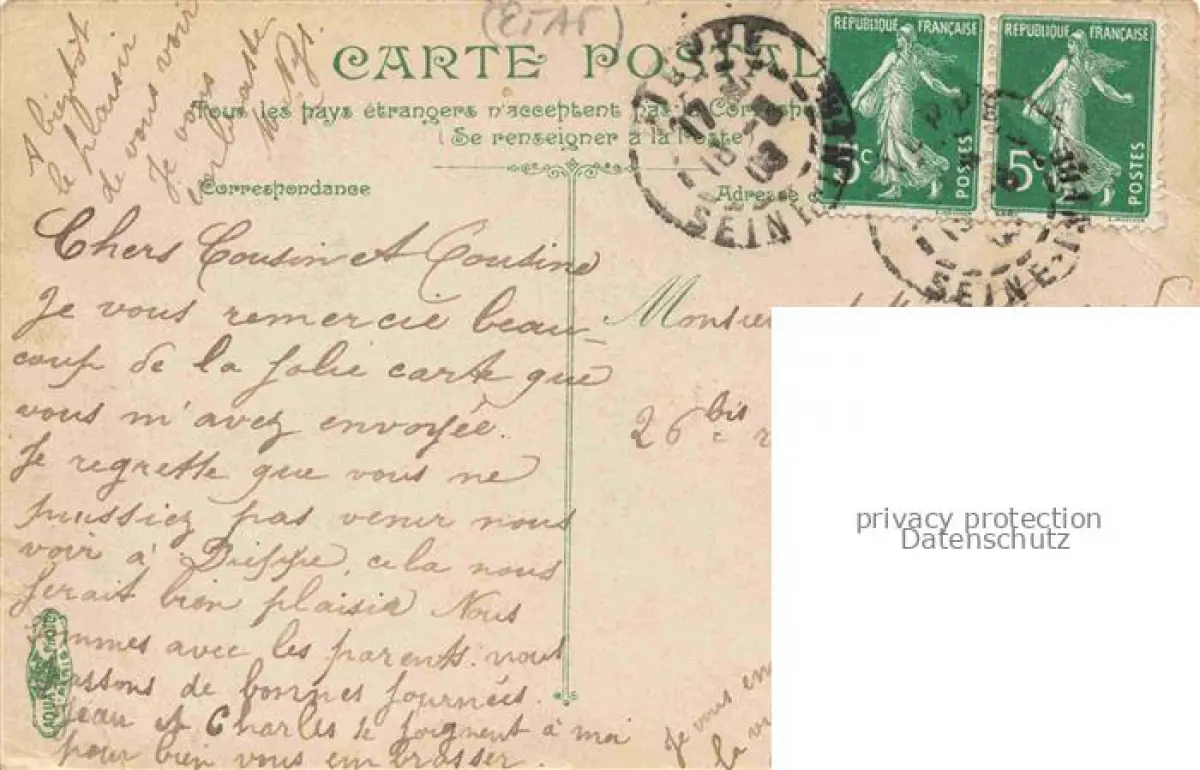 A bientôt
le plaisir
de vous voir
Je vous
embrasse
(ETAT)
CARTE POSTAL
Tous les pays étrangers n'acceptent pas la Correspo
(Se renseigner à la Poste)
Correspondance
Adresse d
RÉPUBLIQUE FRANÇAISE
5c
POSTES
RÉPUBLIQUE FRANÇAISE
5c
POSTES
17
SEINE
SEINE-IN
Chers Cousin et Cousine
Je vous remercie beau-
coup de la jolie carte que
vous m'avez envoyée.
Je regrette que vous ne
puissiez pas venir nous
voir à Dieppe, cela nous
ferait bien plaisir Nous
mmes avec les parents. nous
assons de bonnes journées.
Jean et Charles se joignent à moi
pour bien vous embrasser.
Monsieu
26 bis r
Je vous em
AQUA PHOTO
PARIS
privacy protection
Datenschutz